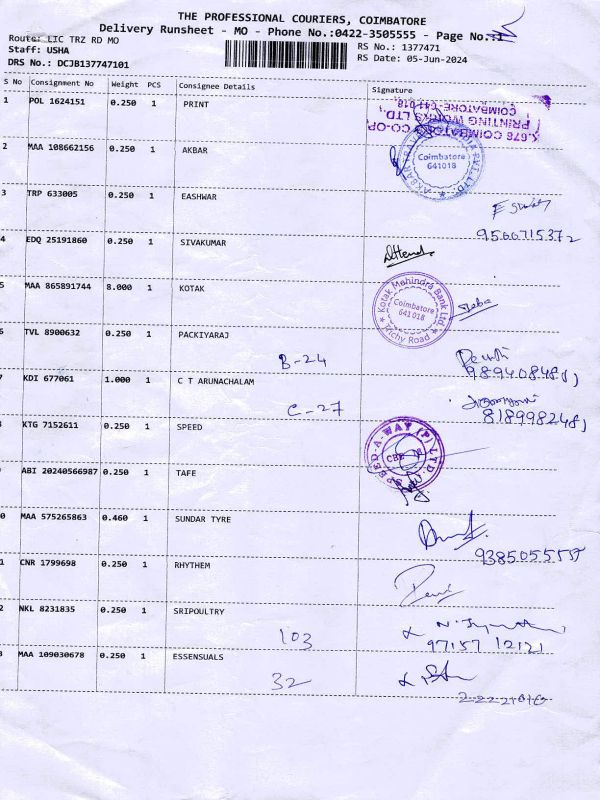 THE PROFESSIONAL COURIERS, COIMBATORE
Delivery Runsheet - MO - Phone No.:0422-3505555 - Page No.:1
Route: LIC TRZ RD MO
RS No.: 1377471
Staff: USHA
RS Date: 05-Jun-2024
DRS No.: DCJB137747101
S No Consignment No Weight PCS Consignee Details Signature
1 POL 1624151 0.250 1 PRINT
COIMBATORE-641 018.
PRINTING WORKS LTD.,
CO-OP
2 MAA 108662156 0.250 1 AKBAR
Coimbatore
641018
3 TRP 633005 0.250 1 EASHWAR
9566715372
4 EDQ 25191860 0.250 1 SIVAKUMAR
5 MAA 865891744 8.000 1 KOTAK
Kotak Mahindra Bank Ltd.
Coimbatore
641 018
Trichy Road
6 TVL 8900632 0.250 1 PACKIYARAJ
B-24
7 KDI 677061 1.000 1 C T ARUNACHALAM
C-27
8189982481
8 KTG 7152611 0.250 1 SPEED
SPEED-A-WAY (P) LTD.
CBE
9 ABI 20240566987 0.250 1 TAFE
0 MAA 575265863 0.460 1 SUNDAR TYRE
9385055555
1 CNR 1799698 0.250 1 RHYTHEM
2 NKL 8231835 0.250 1 SRIPOULTRY
103
97157 12121
3 MAA 109030678 0.250 1 ESSENSUALS
32